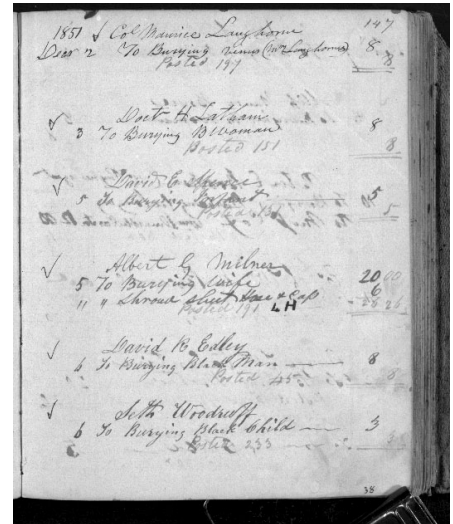 147
1851 √ Col Maurice Langhorne
Decr 2 To Burying Venus (Mr Langhornes) 8
Posted 197 8
√ Doct H Latham
3 To Burying B Woman 8
Posted 151 8
√ David C
5 To Burying 5
Posted 5
√ Albert G Milner
5 To Burying Wife 20 00
" " Shroud sheet Hose & Cap 6
Posted 191 LH 26
√ David R Edley
6 To Burying Black Man 8
Posted 45 8
√ Seth Woodruff
6 To Burying Black Child 3
Posted 233
38